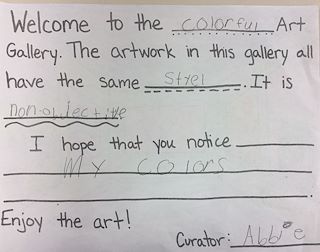 Welcome to the colorful Art
Gallery. The artwork in this gallery all
have the same Styel. It is
non-oljective
I hope that you notice
My COlORS
Enjoy the art!
Curator: Abbie